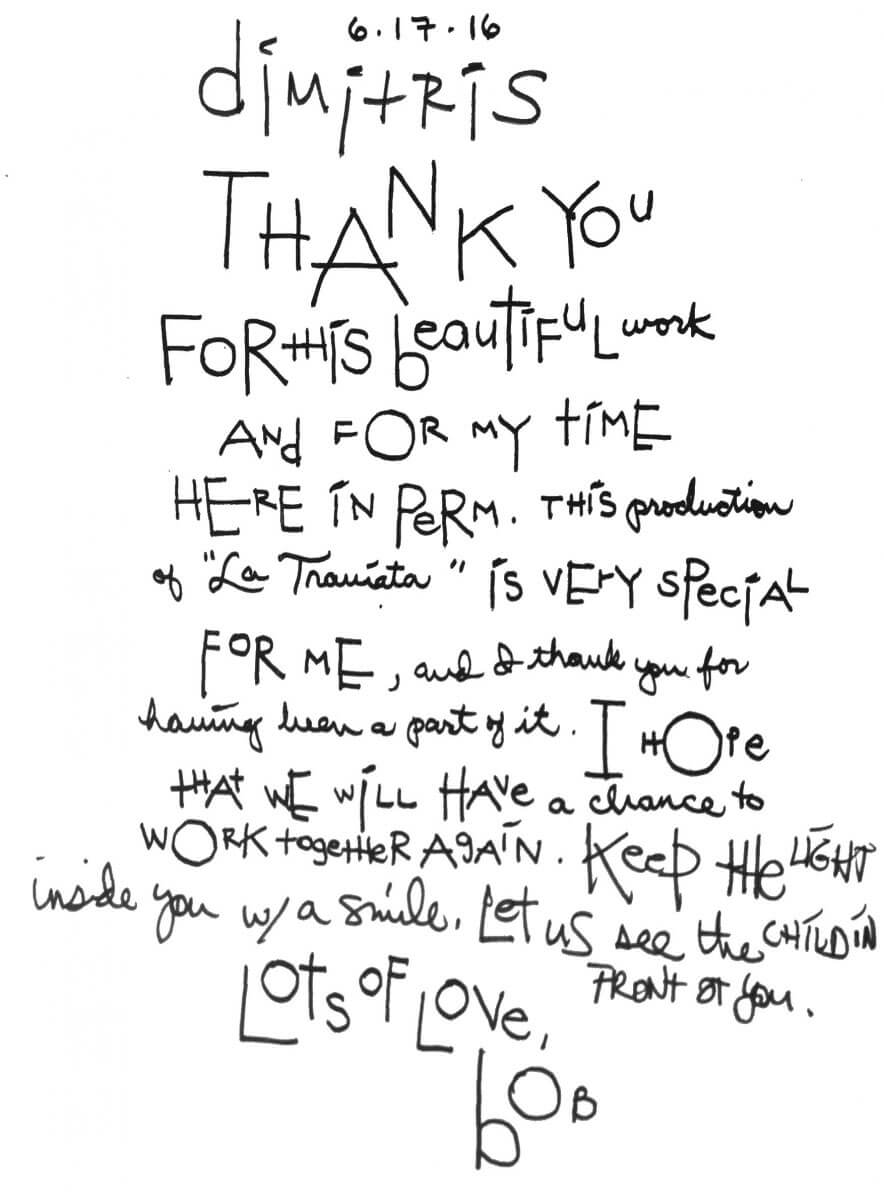 6.17.16
dimitRis
THANK YOU
FOR tHis beautiFUL work
ANd FOR MY tiME
HERE iN PeRM. THiS production
of "La Traviata" iS VERY SPeciAL
FOR ME, and I thank you for
having been a part of it. I HOPe
tHAt WE WiLL HAVe a chance to
WORK togetHeR AgAiN. Keep tHe LiGHT
inside you w/ a smile. Let us see the CHiLD iN
FRONt OF you.
LOts OF LOVe,
bOB